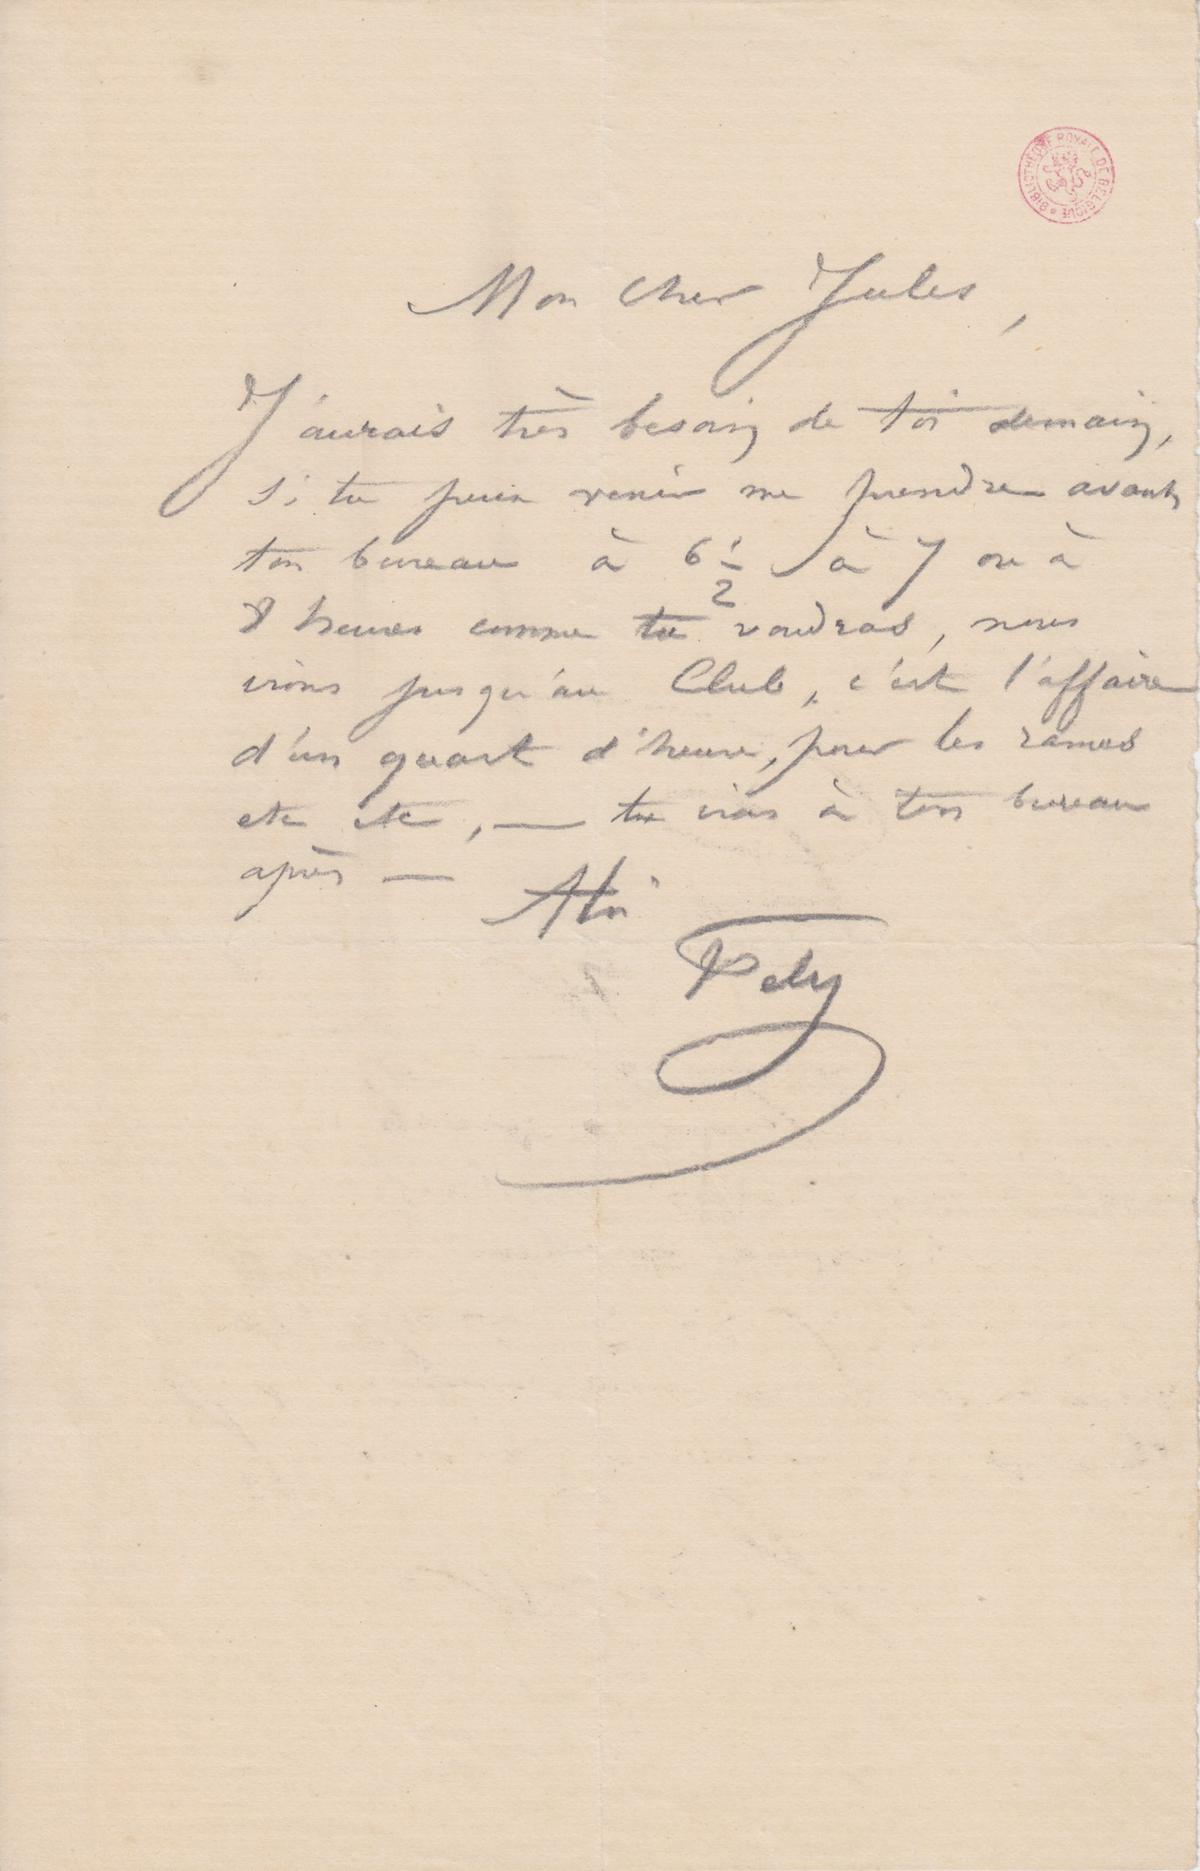 BIBLIOTHÈQUE ROYALE DE BELGIQUE
Mon cher Jules,
J'aurais très besoin de toi demain,
si tu peux venir me prendre avant
ton bureau à 6 1/2 à 7 ou à
8 heures comme tu voudras, nous
irons jusqu'au Club, c'est l'affaire
d'un quart d'heure, pour les rames
etc etc, — tu iras à ton bureau
après — A toi
Fély